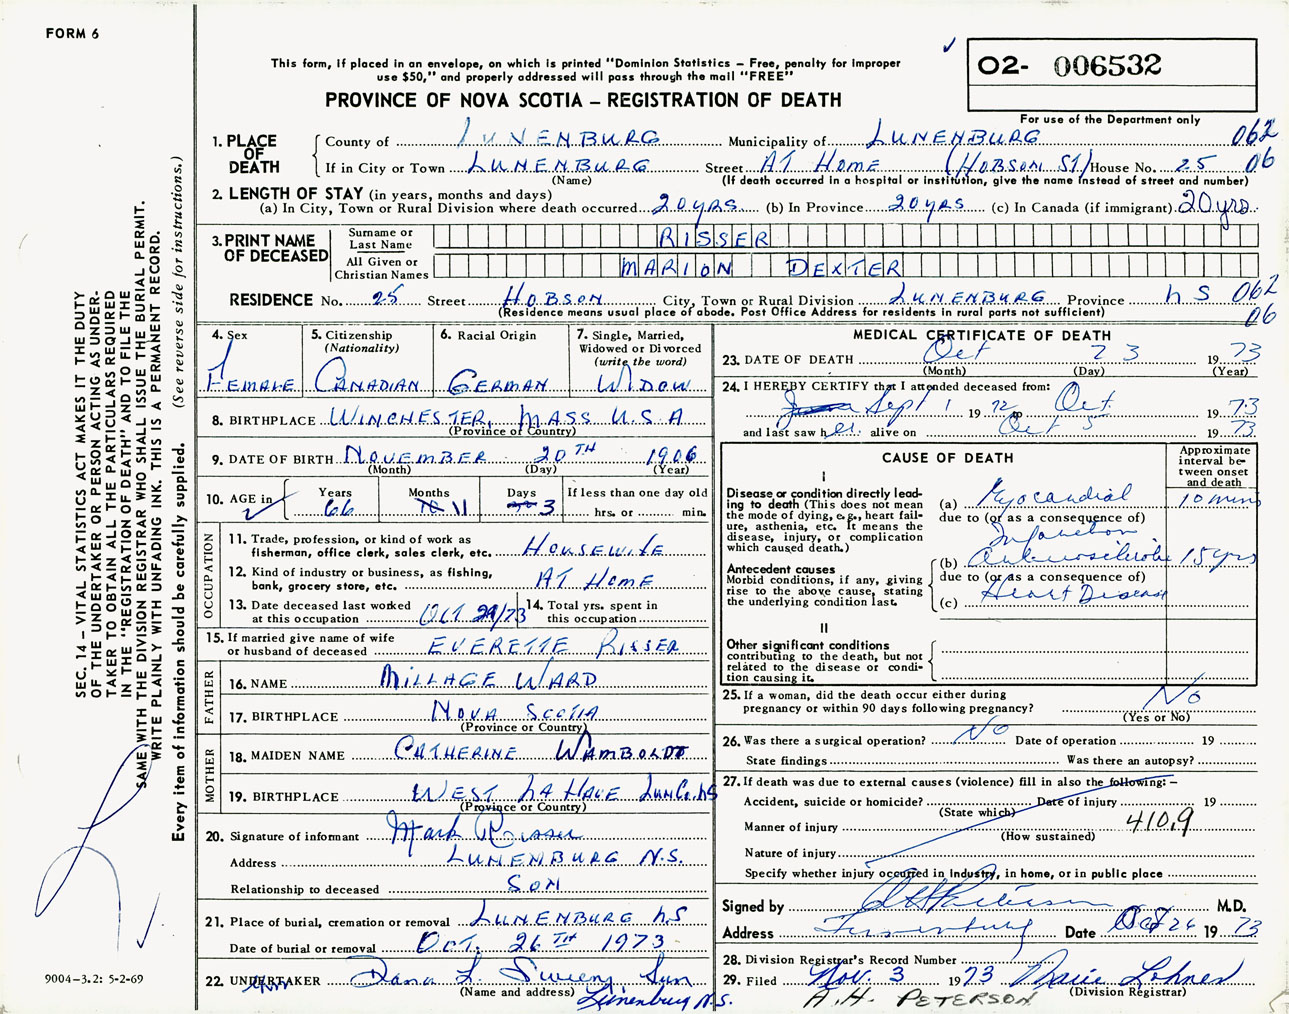 FORM 6
SEC. 14 – VITAL STATISTICS ACT MAKES IT THE DUTY
OF THE UNDERTAKER OR PERSON ACTING AS UNDER-
TAKER TO OBTAIN ALL THE PARTICULARS REQUIRED
IN THE "REGISTRATION OF DEATH" AND TO FILE THE
SAME WITH THE DIVISION REGISTRAR WHO SHALL ISSUE THE BURIAL PERMIT.
WRITE PLAINLY WITH UNFADING INK. THIS IS A PERMANENT RECORD.
Every item of information should be carefully supplied. (See reverse side for instructions.)
9004–3.2: 5-2-69
This form, if placed in an envelope, on which is printed "Dominion Statistics – Free, penalty for improper
use $50," and properly addressed will pass through the mail "FREE"
PROVINCE OF NOVA SCOTIA – REGISTRATION OF DEATH
02- 006532
For use of the Department only
1. PLACE OF DEATH
County of LUNENBURG Municipality of LUNENBURG 062
If in City or Town LUNENBURG Street AT HOME (HOBSON ST) House No. 25 06
(Name) (If death occurred in a hospital or institution, give the name instead of street and number)
2. LENGTH OF STAY (in years, months and days)
(a) In City, Town or Rural Division where death occurred 20 yrs (b) In Province 20 yrs (c) In Canada (if immigrant) 20 yrs.
3. PRINT NAME OF DECEASED
Surname or Last Name RISSER
All Given or Christian Names MARION DEXTER
RESIDENCE No. 25 Street HOBSON City, Town or Rural Division LUNENBURG Province N S 062
(Residence means usual place of abode. Post Office Address for residents in rural parts not sufficient) 06
4. Sex FEMALE
5. Citizenship (Nationality) CANADIAN
6. Racial Origin GERMAN
7. Single, Married, Widowed or Divorced (write the word) WIDOW
8. BIRTHPLACE WINCHESTER, MASS U.S.A
(Province of Country)
9. DATE OF BIRTH NOVEMBER 20TH 1906
(Month) (Day) (Year)
10. AGE in Years 66 Months 11 Days 3 If less than one day old
hrs. or min.
OCCUPATION
11. Trade, profession, or kind of work as
fisherman, office clerk, sales clerk, etc. HOUSEWIFE
12. Kind of industry or business, as fishing,
bank, grocery store, etc. AT HOME
13. Date deceased last worked
at this occupation OCT /73
14. Total yrs. spent in
this occupation
15. If married give name of wife
or husband of deceased EVERETTE RISSER
FATHER
16. NAME MILLAGE WARD
17. BIRTHPLACE NOVA SCOTIA
(Province or Country)
MOTHER
18. MAIDEN NAME CATHERINE WAMBOLDT
19. BIRTHPLACE WEST LA HAVE LUN.CO. NS
(Province or Country)
20. Signature of informant Mark Risser
Address LUNENBURG N.S.
Relationship to deceased SON
21. Place of burial, cremation or removal LUNENBURG N S
Date of burial or removal OCT. 26TH 1973
22. UNDERTAKER Dana L. Sweeny Son
(Name and address) Lunenburg N.S.
MEDICAL CERTIFICATE OF DEATH
23. DATE OF DEATH Oct 23 1973
(Month) (Day) (Year)
24. I HEREBY CERTIFY that I attended deceased from:
Sept 1 1972 to Oct 1973
and last saw her alive on Oct 5 1973
CAUSE OF DEATH
Approximate interval between onset and death
I
Disease or condition directly lead-
ing to death (This does not mean
the mode of dying, e.g., heart fail-
ure, asthenia, etc. It means the
disease, injury, or complication
which caused death.)
(a) Myocardial 10 mins
due to (or as a consequence of)
Infarction
Antecedent causes
Morbid conditions, if any, giving
rise to the above cause, stating
the underlying condition last.
(b) Arteriosclerotic 15 yrs
due to (or as a consequence of)
(c) Heart Disease
II
Other significant conditions
contributing to the death, but not
related to the disease or condi-
tion causing it.
25. If a woman, did the death occur either during
pregnancy or within 90 days following pregnancy? No
(Yes or No)
26. Was there a surgical operation? No Date of operation 19
State findings Was there an autopsy?
27. If death was due to external causes (violence) fill in also the following: –
Accident, suicide or homicide? Date of injury 19
(State which)
Manner of injury 410.9
(How sustained)
Nature of injury
Specify whether injury occurred in industry, in home, or in public place
Signed by M.D.
Address Lunenburg Date Oct 26 1973
28. Division Registrar's Record Number
29. Filed Nov. 3 1973 Marie Lohnes
(Division Registrar)
A.H. PETERSON